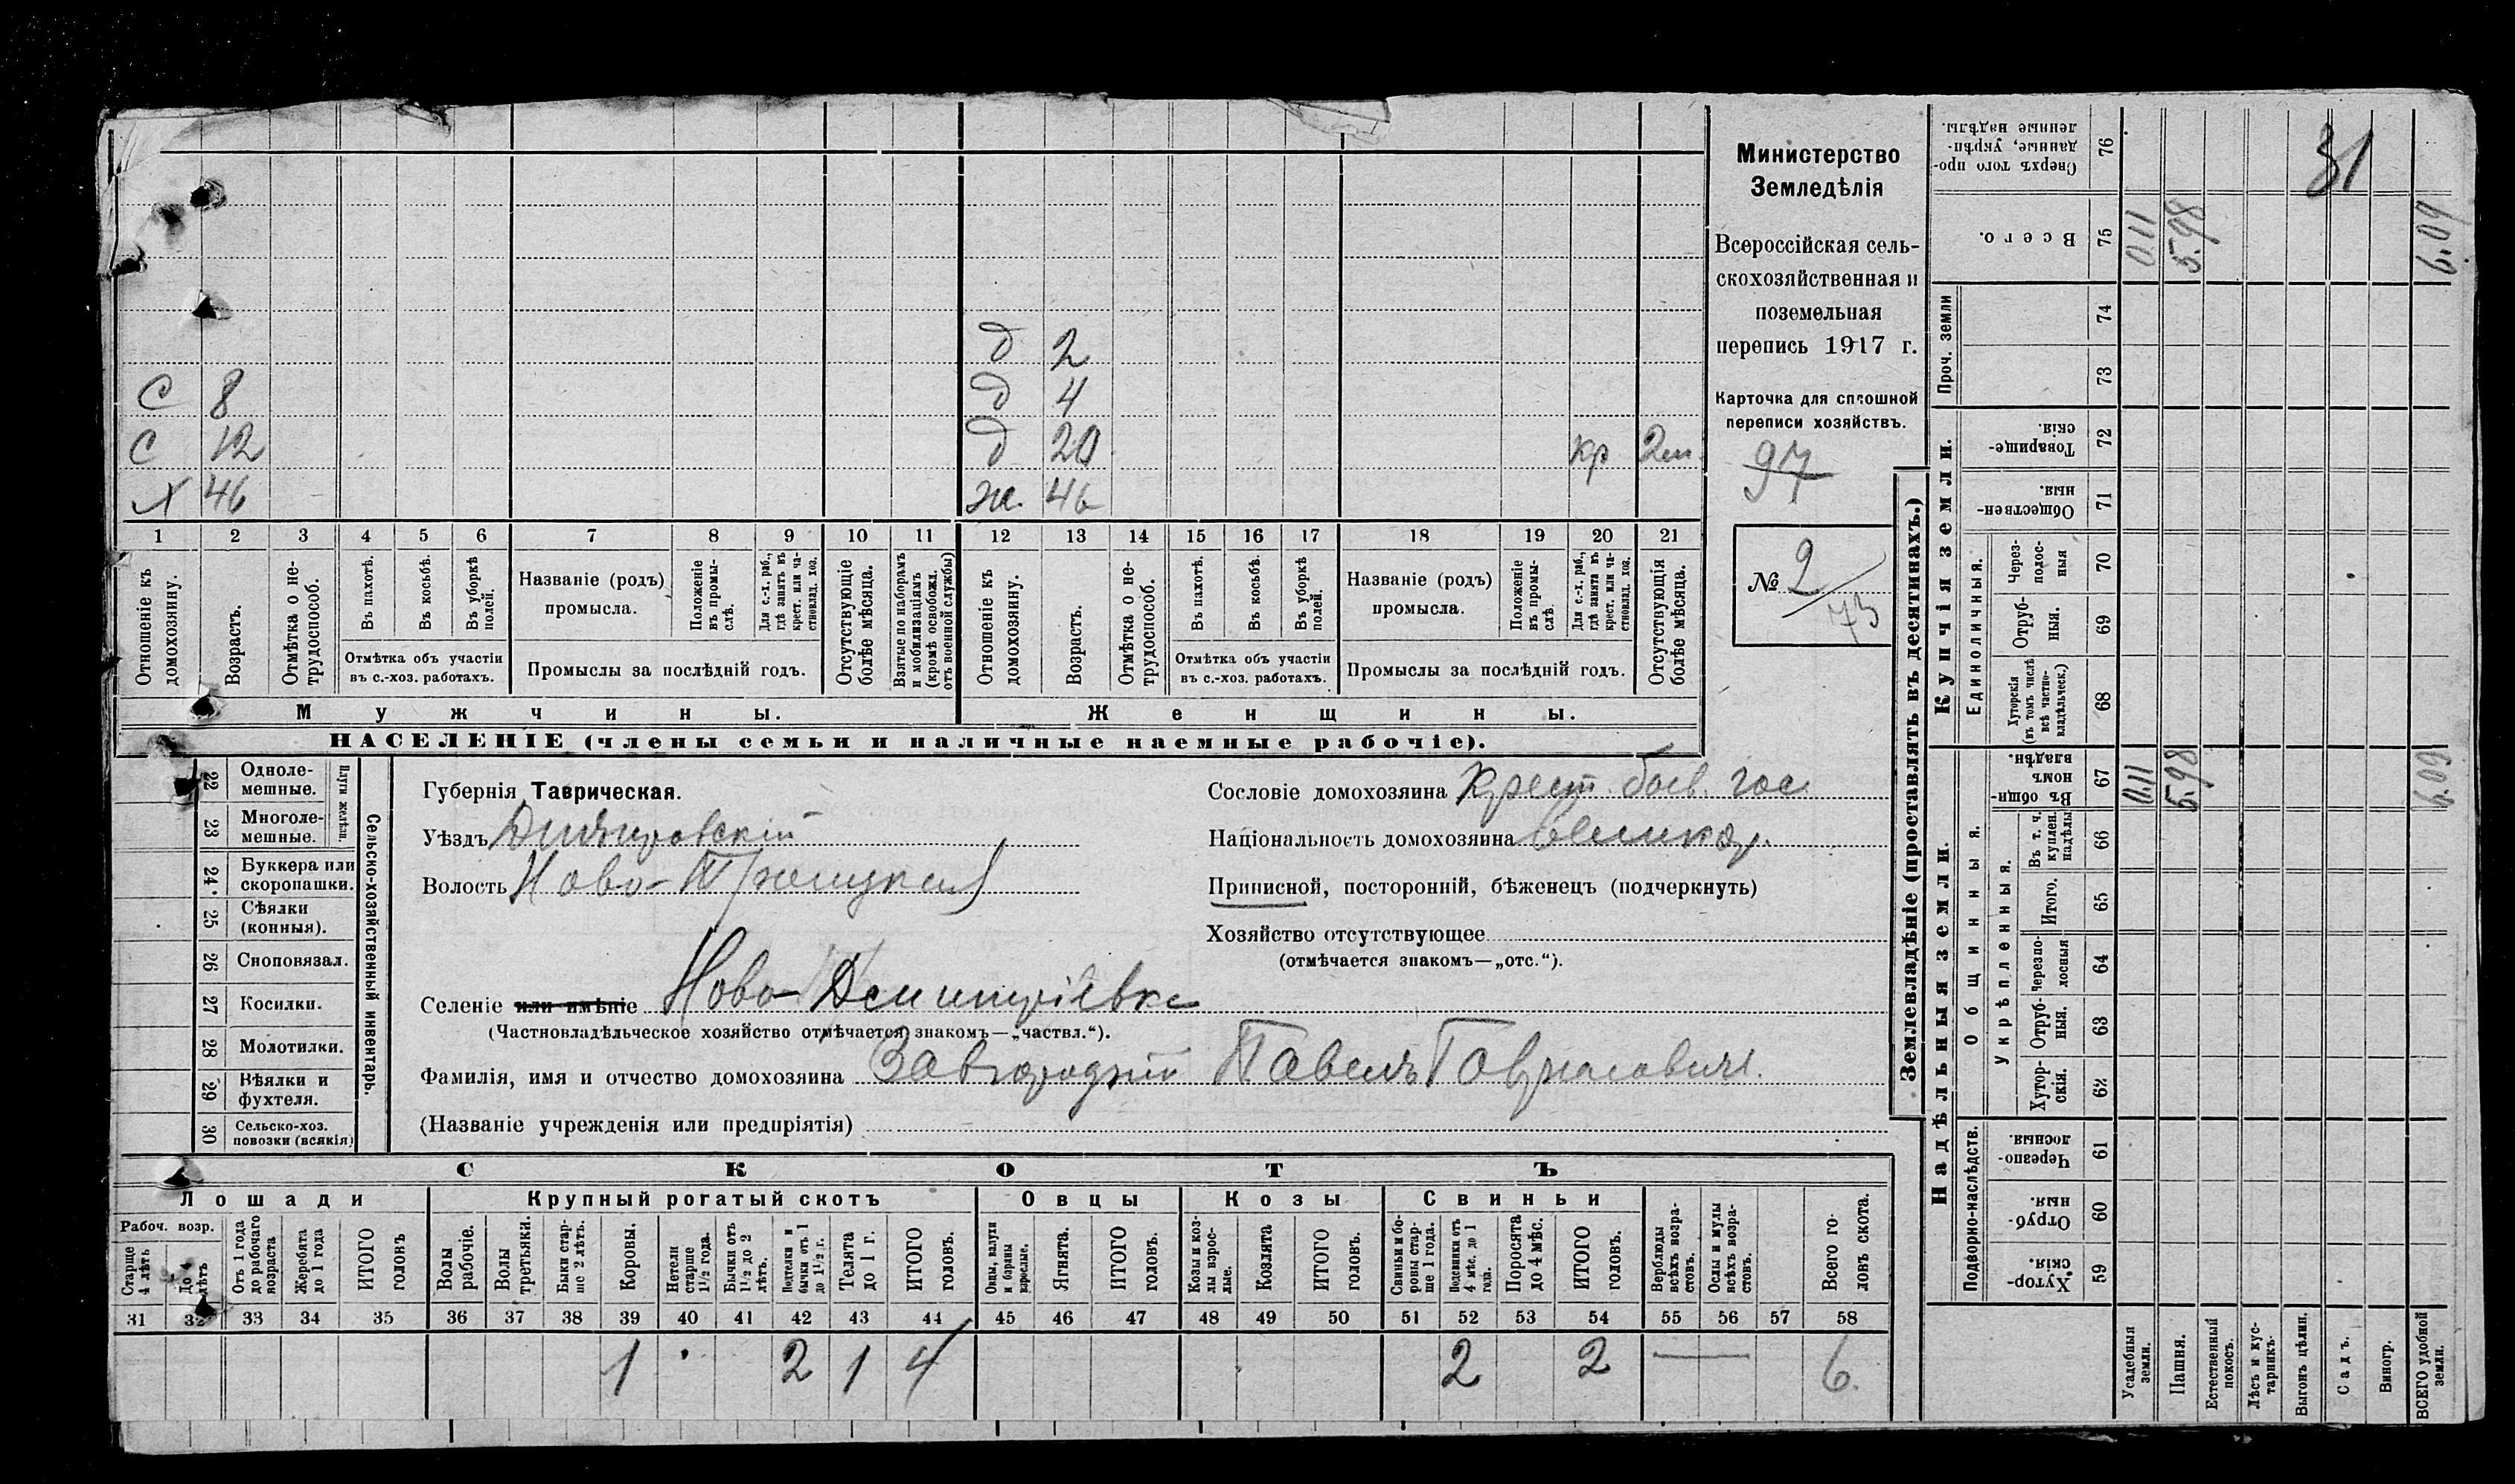 Министерство
Земледѣлія
Всероссійская сель-
скохозяйственная и
поземельная
перепись 1917 г.
Карточка для сплошной
переписи хозяйствъ.
97
№ 2/73
31
д 2
С 8 д 4
С 12 д 20 кр 2м
Х 46 ж. 46
1 2 3 4 5 6 7 8 9 10 11 12 13 14 15 16 17 18 19 20 21
Отношеніе къ домохозяину.
Возрастъ.
Отмѣтка о не-трудоспособ.
Въ пахотѣ.
Въ косьбѣ.
Въ уборкѣ полей.
Отмѣтка объ участіи
въ с.-хоз. работахъ.
Названіе (родъ)
промысла.
Положеніе въ промы-слѣ.
Для с.-х. раб., гдѣ занятъ въ крест. или ча-стновлад. хоз.
Промыслы за послѣдній годъ.
Отсутствующіе болѣе мѣсяца.
Взятые по наборамъ и мобилизаціямъ (кромѣ освобожд. отъ военной службы)
Отношеніе къ домохозяину.
Возрастъ.
Отмѣтка о не-трудоспособ.
Въ пахотѣ.
Въ косьбѣ.
Въ уборкѣ полей.
Отмѣтка объ участіи
въ с.-хоз. работахъ.
Названіе (родъ)
промысла.
Положеніе въ промы-слѣ.
Для с.-х. раб., гдѣ занята въ крест. или ча-стновлад. хоз.
Промыслы за послѣдній годъ.
Отсутствующія болѣе мѣсяца.
Мужчины. Женщины.
НАСЕЛЕНІЕ (члены семьи и наличные наемные рабочіе).
22 Одноле-мешные.
23 Многоле-мешные.
Плуги желѣзн.
24 Буккера или скоропашки.
25 Сѣялки (конныя).
26 Сноповязал.
27 Косилки.
28 Молотилки.
29 Вѣялки и фухтеля.
30 Сельско-хоз. повозки (всякія)
Сельско-хозяйственный инвентарь.
Губернія Таврическая.
Уѣздъ Днѣпровскій
Волость Ново-Троицкая
Селеніе или имѣніе Ново-Дмитріевка
(Частновладѣльческое хозяйство отмѣчается знакомъ—„частвл.“).
Фамилія, имя и отчество домохозяина Завгородній Павелъ Гаврилович
(Названіе учрежденія или предпріятія)
Сословіе домохозяина Крест. бывш. гос
Національность домохозяина великор.
Приписной, посторонній, бѣженецъ (подчеркнуть)
Хозяйство отсутствующее
(отмѣчается знакомъ—„отс.“).
СКОТЪ
Лошади Крупный рогатый скотъ Овцы Козы Свиньи
Рабоч. возр.
Старше 4 лѣтъ
До 4 лѣтъ
Отъ 1 года до рабочаго возраста
Жеребята до 1 года
ИТОГО головъ
Волы рабочіе.
Волы третьяки.
Быки стар-ше 2 лѣтъ.
Коровы.
Нетели старше 1½ года.
Бычки отъ 1½ до 2 лѣтъ.
Подтелки и бычки отъ 1 до 1½ г.
Телята до 1 г.
ИТОГО головъ.
Овцы, валухи и бараны взрослые.
Ягнята.
ИТОГО головъ.
Козы и коз-лы взрос-лые.
Козлята
ИТОГО головъ.
Свиньи и бо-ровы стар-ше 1 года.
Подсвинки отъ 4 мѣс. до 1 года.
Поросята до 4 мѣс.
ИТОГО головъ.
Верблюды всѣхъ возра-стовъ.
Ослы и мулы всѣхъ возра-стовъ.
Всего го-ловъ скота.
31 32 33 34 35 36 37 38 39 40 41 42 43 44 45 46 47 48 49 50 51 52 53 54 55 56 57 58
1 2 1 4 2 2 — 6.
Землевладѣніе (проставлять въ десятинахъ.)
Надѣльныя земли. Купчія земли. Проч. земли
Подворно-наслѣдств.
Общинныя.
Укрѣпленныя.
Единоличныя.
Хутор-скія. 59
Отруб-ныя. 60
Черезпо-лосныя. 61
Хутор-скія. 62
Отруб-ныя. 63
Черезпо-лосныя 64
Итого. 65
Въ т. ч. куплен. надѣлы 66
Въ общи-номъ владѣн. 67 0.11 5.98 6.09
Хуторскія (въ томъ числѣ всѣ частно-владѣльческ.) 68
Отруб-ныя. 69
Через-полос-ныя 70
Обществен-ныя. 71
Товарище-скія. 72
73
74
Всего. 75 0.11 5.98 6.09
Сверхъ того про-данные, укрѣп-ленные надѣлы. 76
Усадебныя земли.
Пашня.
Естественный покосъ.
Лѣсъ и кус-тарникъ.
Выгонъ цѣлин.
Садъ.
Виногр.
ВСЕГО удобной земли.